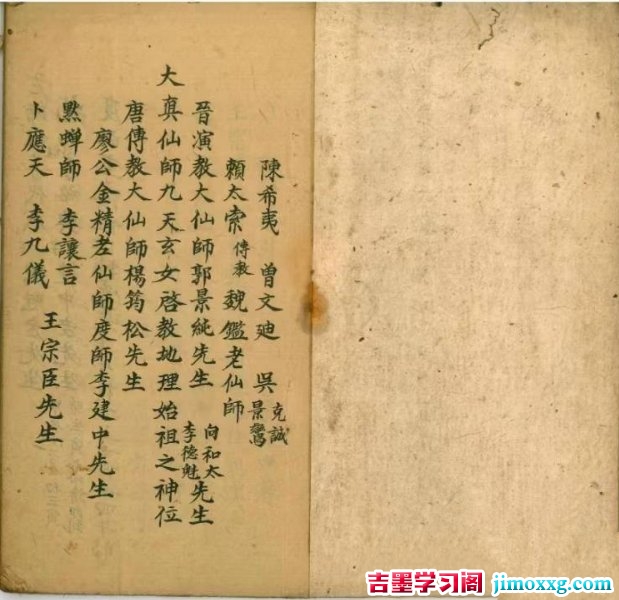 陳希夷 曾文廸 吳克誠景鸞
賴太索傳教 魏鑑老仙師
晉演教大仙師郭景純先生 向和太李德魁先生
大真仙師九天玄女啓教地理始祖之神位
唐傳教大仙師楊筠松先生
廖公金精老仙師度師李建中先生
㸃蟬師 李讓言
卜應天 李九儀
王宗臣先生
吉墨学习阁 jimoxxg.com